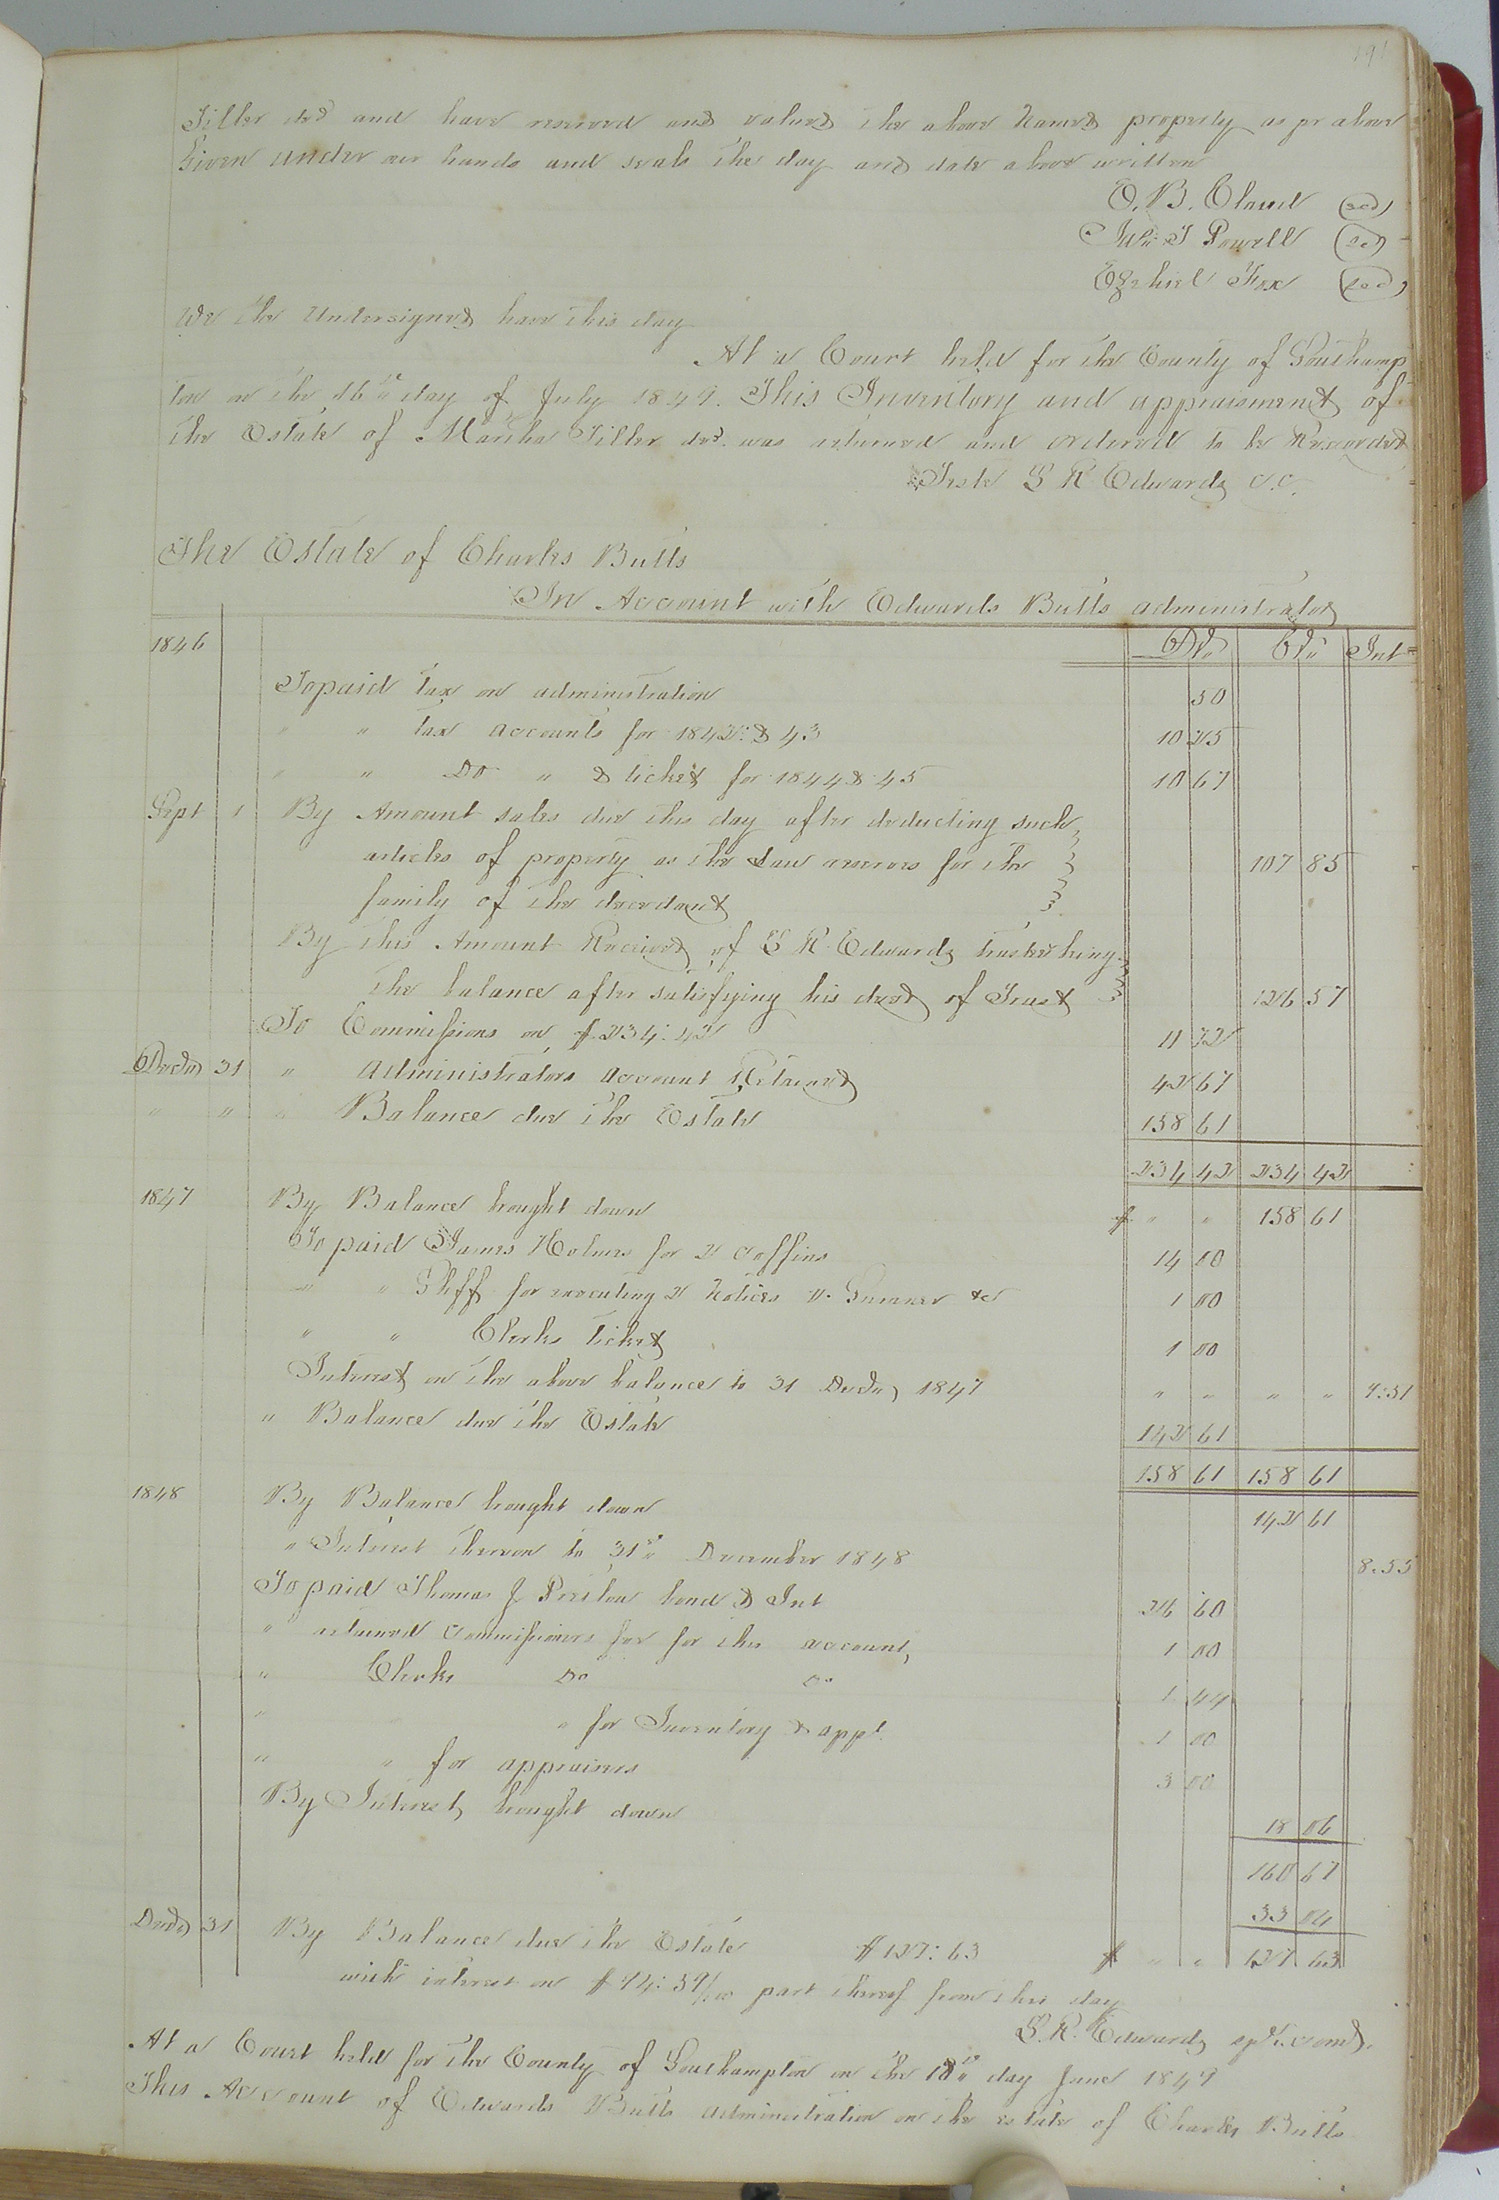 191
Tiller decd and have reviewed and valued the above Named property as pr above
Given under our hands and seals the day and date above written
E. B. Claud (sed)
Jno. T Powell (sed)
Ezekiel Fox (sed)
We the Undersigned have this day
At a Court held for the County of Southamp
ton on the 16th day of July 1849. This Inventory and appraisment of
the Estate of Martha Tiller decd. was returned and ordered to be Recorded
Teste L R Edwards C.C.
The Estate of Charles Butts
In Account with Edwards Butts administrator
1846 Dr. Cr. Int
To paid tax on administration 50
" " tax accounts for 1842 & 43 10 25
" " Do " & ticket for 1844 & 45 10 67
Sept 1 By Amount sales due this day after deducting such
articles of property as the Law reserves for the 107 85
family of the decedant
By this Amount Received of L R Edwards trustee being
the balance after satisfying his deed of Trust 126 57
To Commissions on $234:42 11 72
Decdr 31 " administrators account Retained 42 67
" " " Balance due the Estate 158 61
234 42 234 42
1847 By Balance brought down $ " " 158 61
To paid James Holmes for 2 coffins 14 00
" " Shff for executing 2 Notices &c 1 00
" " Clerks ticket 1 00
Interest on the above balance to 31 Decdr, 1847 " " " " 9:51
" Balance due the Estate 142 61
158 61 158 61
1848 By Balance brought down 142 61
" Interest thereon to 31st December 1848 8.55
To paid Thomas J Preslow bond & Int 26 60
" returned Commissioners fee for this account, 1 00
" Clerks Do Do 1 44
" " for Inventory & appt. 1 00
" " for appraisers 3 00
By Interest, brought down 18 06
160 67
33 04
Decdr 31 By Balance due the Estate $127:63 $ " " 127 63
with interest on $94:59/100 part thereof from this day
L. R. Edwards spl. comd.
At a Court held for the County of Southampton on the 18th day June 1849
This Account of Edwards Butts administration on the estate of Charles Butts